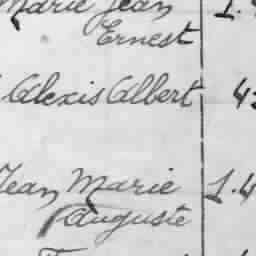 Marie Jean 1.
Ernest
Alexis Albert 4
Jean Marie 1.4
Auguste